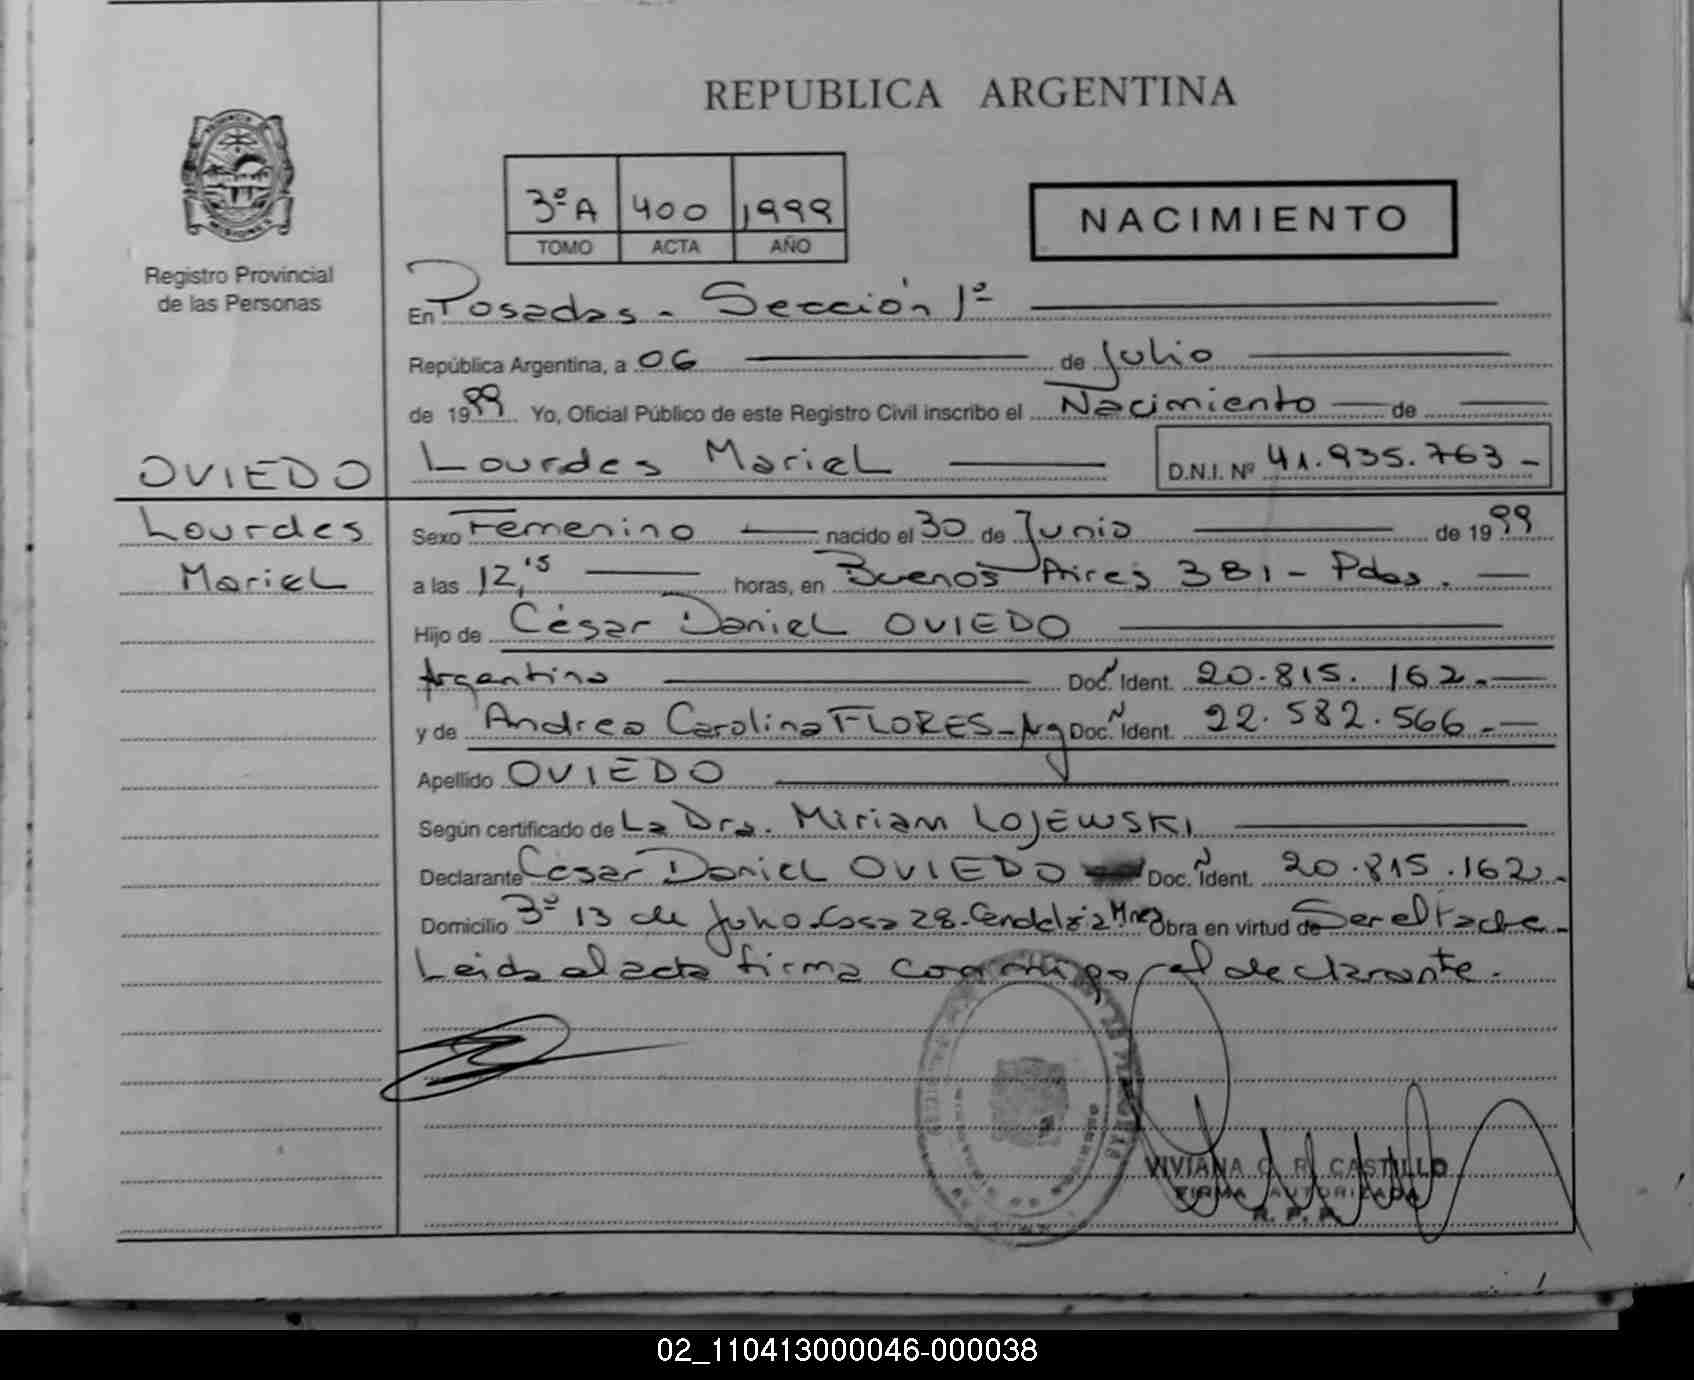 REPUBLICA ARGENTINA
3º A 400 1999
TOMO ACTA AÑO
NACIMIENTO
Registro Provincial
de las Personas
En Posadas - Sección 1º
República Argentina, a 06 de Julio
de 1999 Yo, Oficial Público de este Registro Civil inscribo el Nacimiento de
OVIEDO Lourdes Mariel D.N.I. Nº 41.935.763-
Lourdes Sexo Femenino nacido el 30 de Junio de 1999
Mariel a las 12,15 horas, en Buenos Aires 381 - Pdas.
Hijo de César Daniel OVIEDO
Argentino Doc. N Ident. 20.815.162.-
y de Andrea Carolina FLORES - Arg Doc. N Ident. 22.582.566.-
Apellido OVIEDO
Según certificado de La Dra. Miriam LOJEWSKI
Declarante César Daniel OVIEDO Doc. N Ident. 20.815.162.-
Domicilio 3º 13 de Julio Casa 28. Candelaria Mnes Obra en virtud de Ser el Padre.-
Leida el acta firma conmigo el declarante.
VIVIANA C. R. CASTILLO
FIRMA AUTORIZADA
R. P. P.
02_110413000046-000038